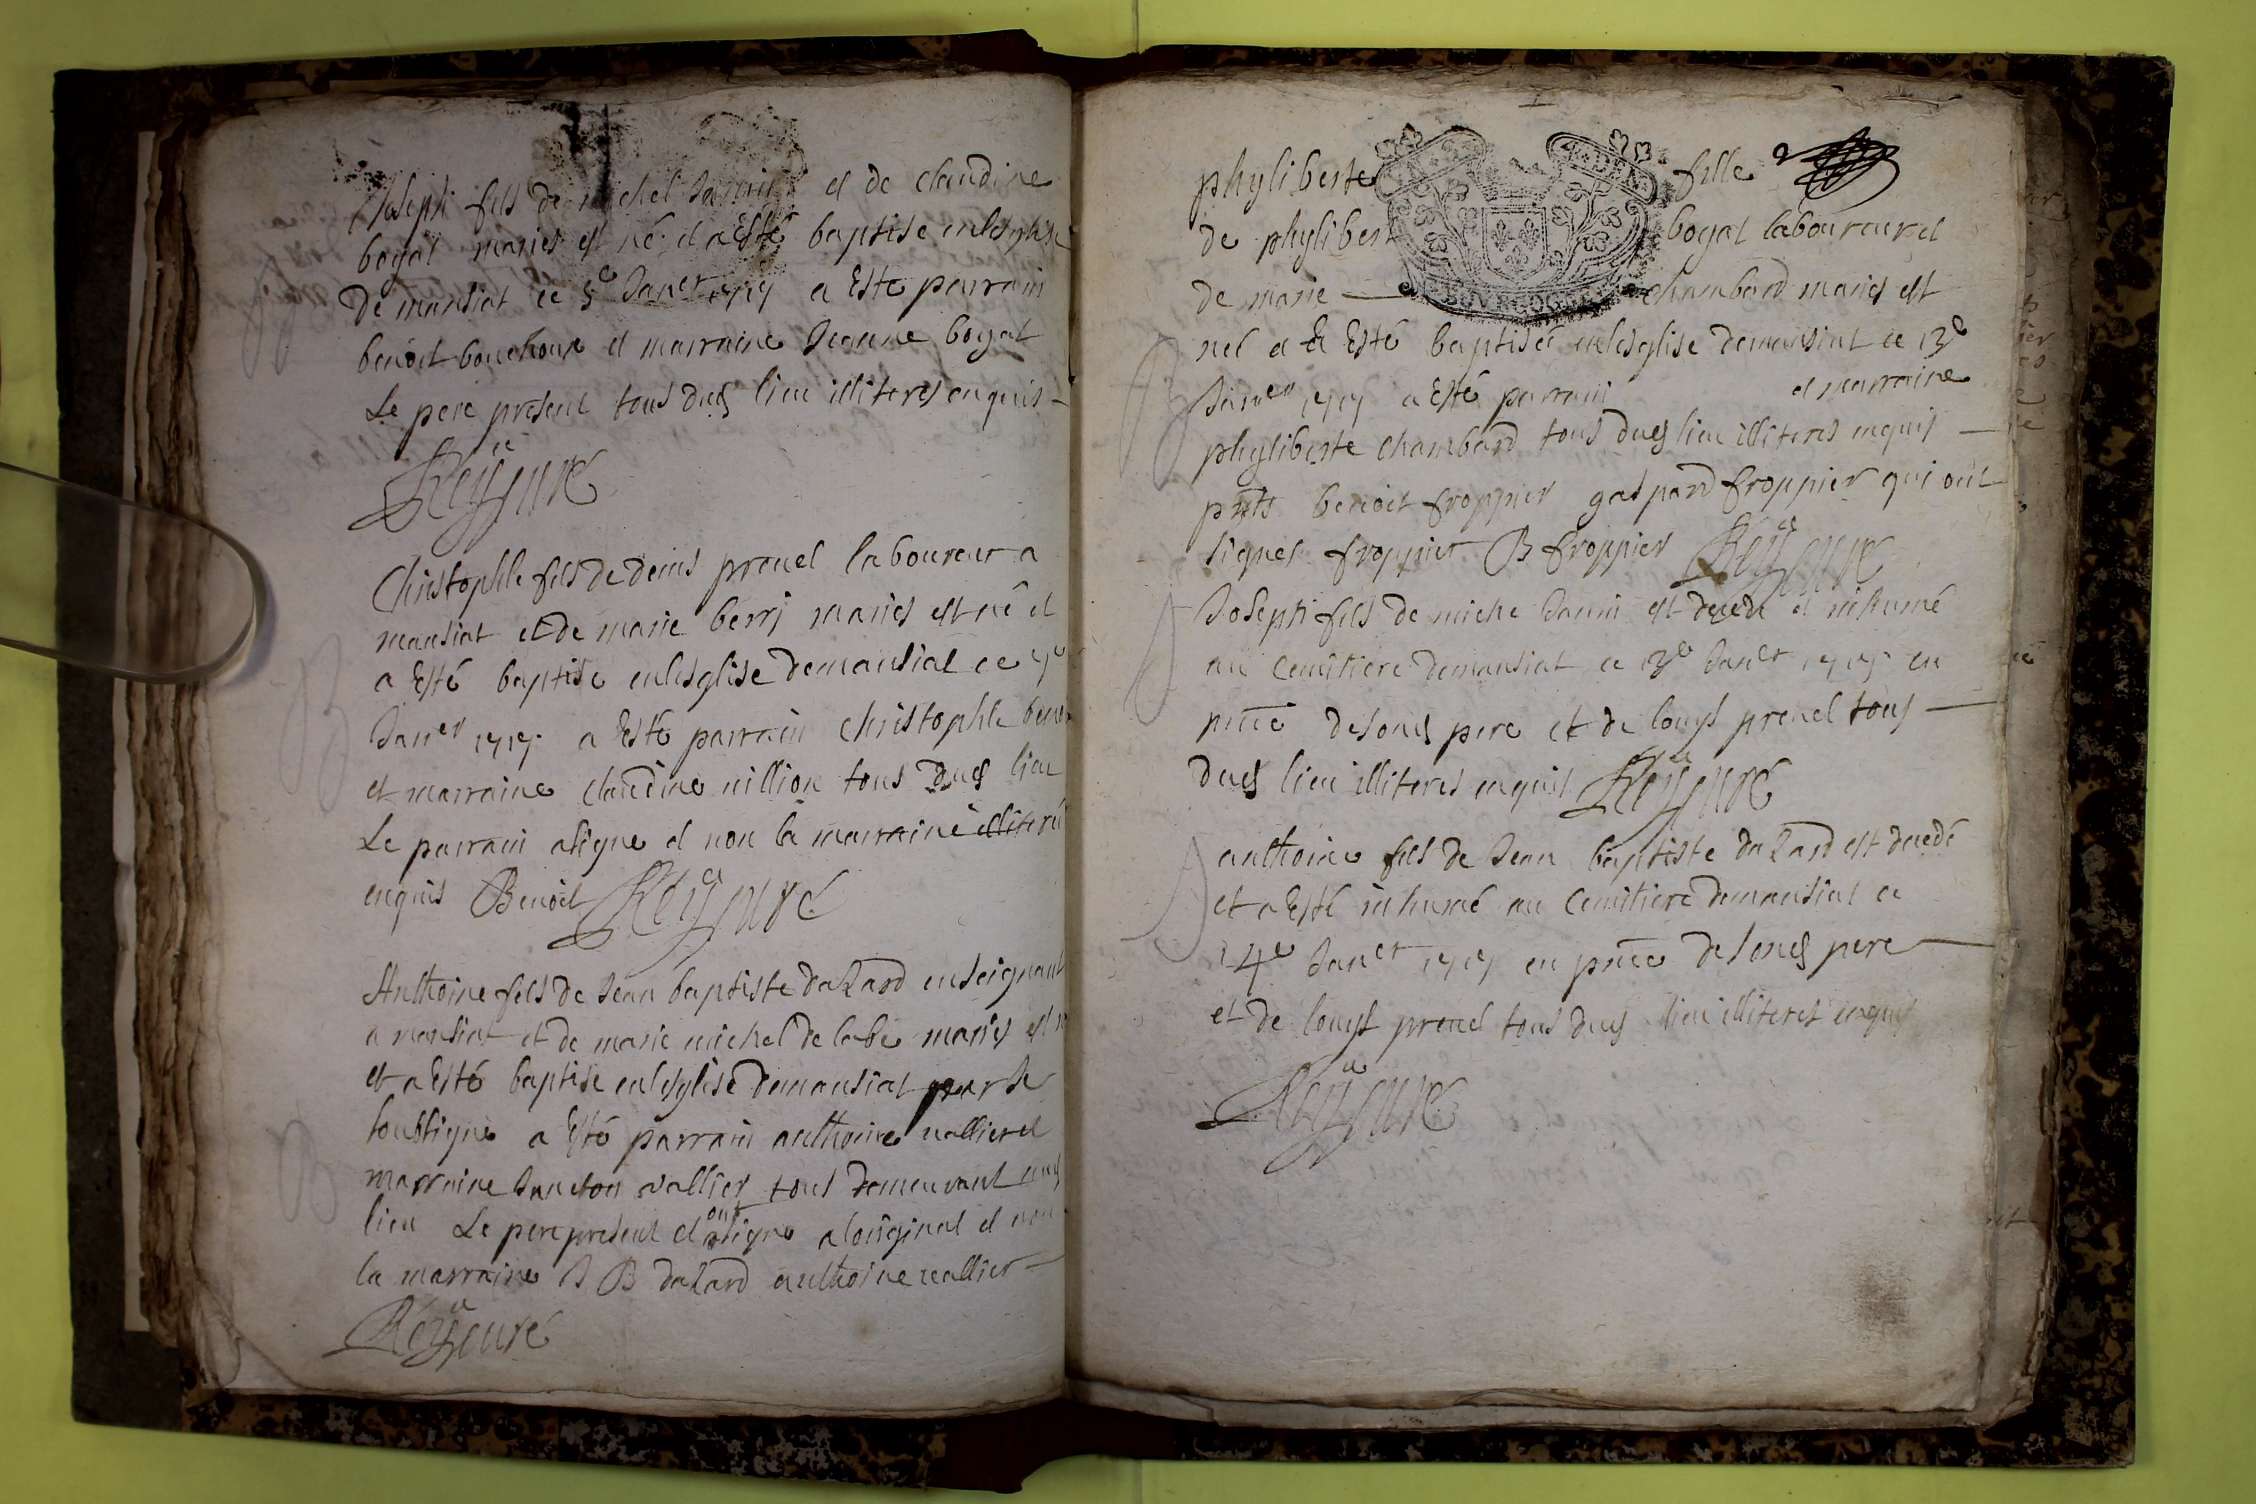 Joseph fils de michel Janin et de claudine
bogat mariés est né et a Esté baptise enlesglise
de mansiat ce 5e Janer 1717 a Esté parrain
benoit bouchoux et marraine Jeanne bogat
Le pere present tous dud lieu illiteres enquis
Rey curé
Christophle fils de denis prevel laboureur a
mansiat et de marie berri mariés est né et
a Esté baptise enlesglise de mansiat ce 7e
Janer 1717 a Esté parrain christophle benoi
et marraine claudine million tous dud lieu
Le parrain a signe et non la marraine illiteré
enquis Benoit Rey curé
Anthoine fils de Jean baptiste dazard enseignant
a mansiat et de marie michel de labe mariés est n
et a Esté baptise enlesglise de mansiat par Je
soubsigne a Esté parrain anthoine vallier et
marraine Janeton vallier tous demeurant aud
lieu Le pere present et ont signe a loriginal et non
la marraine J B dazard anthoine vallier
Rey curé
phyliberte fille
de phylibert bogat laboureur et
de marie chambard mariés est
neé et a Esté baptiseé enlesglise de mansiat ce 13e
Janer 1717 a Esté parrain et marraine
phyliberte chambard tous dud lieu illiteres enquis
pnts benoit froppier gaspard froppier qui ont
signes froppier B froppier Rey curé
Joseph fils de miche Janin est decede et inhumé
au cemitiere de mansiat ce 13e Janer 1717 en
pnce de soned pere et de louys prevel tous
dud lieu illiteres enquis Rey curé
anthoine fils de Jean baptiste dazard est decedé
et a Esté inhumé au cemitiere de mansiat ce
14e Janer 1717 en pnce de soned pere
et de louys prevel tous dud lieu illiteres enquis
Rey curé